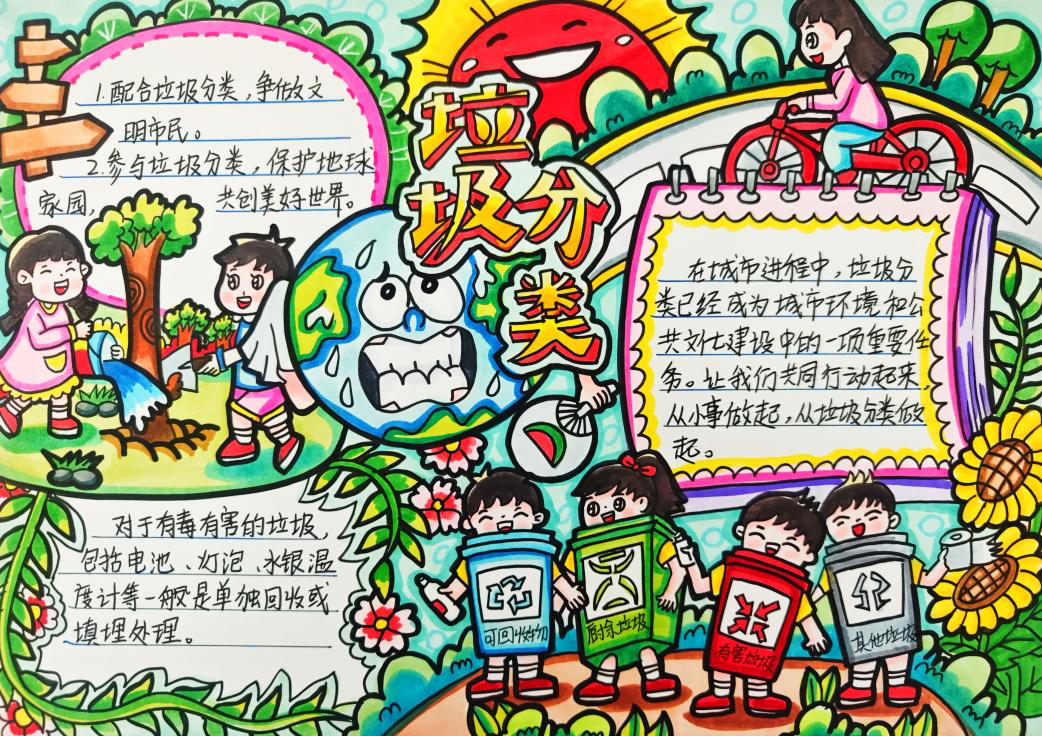 垃
圾分
类
1.配合垃圾分类,争做文
明市民。
2.参与垃圾分类,保护地球
家园, 共创美好世界。
在城市进程中,垃圾分
类已经成为城市环境和公
共对七建设中的一项重要任
务。让我们共同行动起来,
从小事做起,从垃圾分类做
起。
对于有毒有害的垃圾,
包括电池、灯泡、水银温
度计等一般是单独回收或
填埋处理。
可回收物
厨余垃圾
有害垃圾
其他垃圾